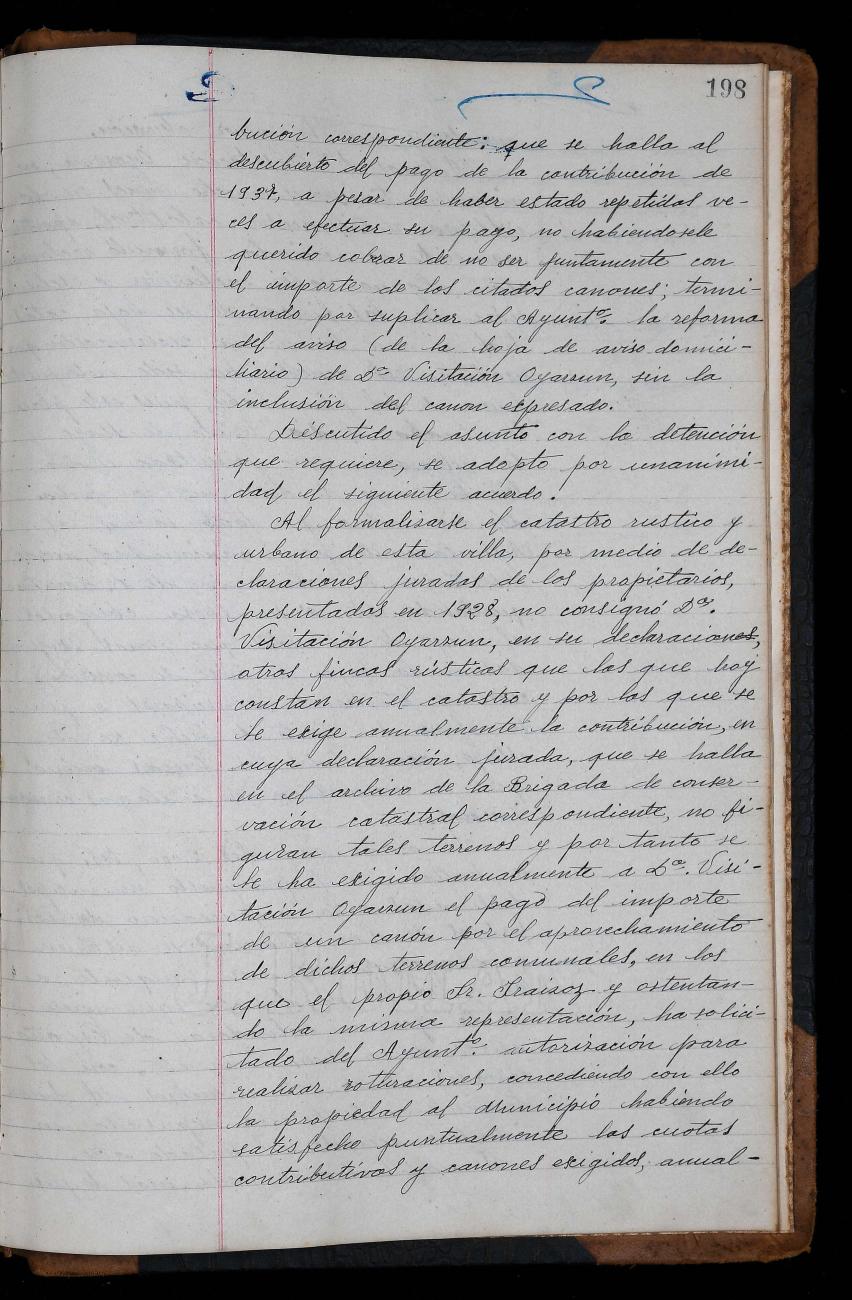 198
bución correspondiente: que se halla al
descubierto del pago de la contribución de
1937, a pesar de haber estado repetidas ve-
ces a efectuar su pago, no habiendosele
querido cobrar de no ser juntamente con
el importe de los citados canones; termi-
nando por suplicar al Ayuntº. la reforma
del aviso (de la hoja de aviso domici-
liario) de Dª Visitación Oyarzun, sin la
inclusión del canon expresado.
Discutido el asunto con la detención
que requiere, se adopto por unanimi-
dad el siguiente acuerdo.
Al formalizarse el catastro rustico y
urbano de esta villa, por medio de de-
claraciones juradas de los propietarios,
presentadas en 1928, no consignó Dª.
Visitación Oyarzun, en su declaraciones,
otras fincas rústicas que las que hoy
constan en el catastro y por las que se
le exige anualmente la contribución, en
cuya declaración jurada, que se halla
en el archivo de la Brigada de conser-
vación catastral correspondiente, no fi-
guran tales terrenos y por tanto se
le ha exigido anualmente a Dª. Visi-
tación Oyarzun el pago del importe
de un canón por el aprovechamiento
de dichos terrenos comunales, en los
que el propio Sr. Iraizoz y ostentan-
do la misma representación, ha solici-
tado del Ayuntº. autorización para
realizar roturaciones, concediendo con ello
la propiedad al Municipio habiendo
satisfecho puntualmente las cuotas
contributivas y canones exigidos, anual-